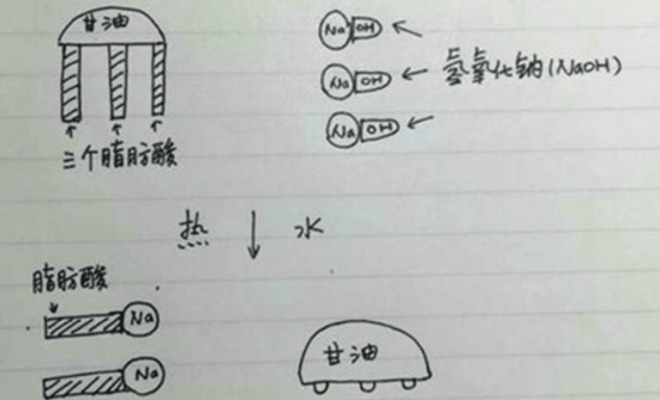 甘油
Na OH
Na OH
氢氧化钠(NaOH)
Na OH
三个脂肪酸
热
水
脂肪酸
Na
甘油
Na